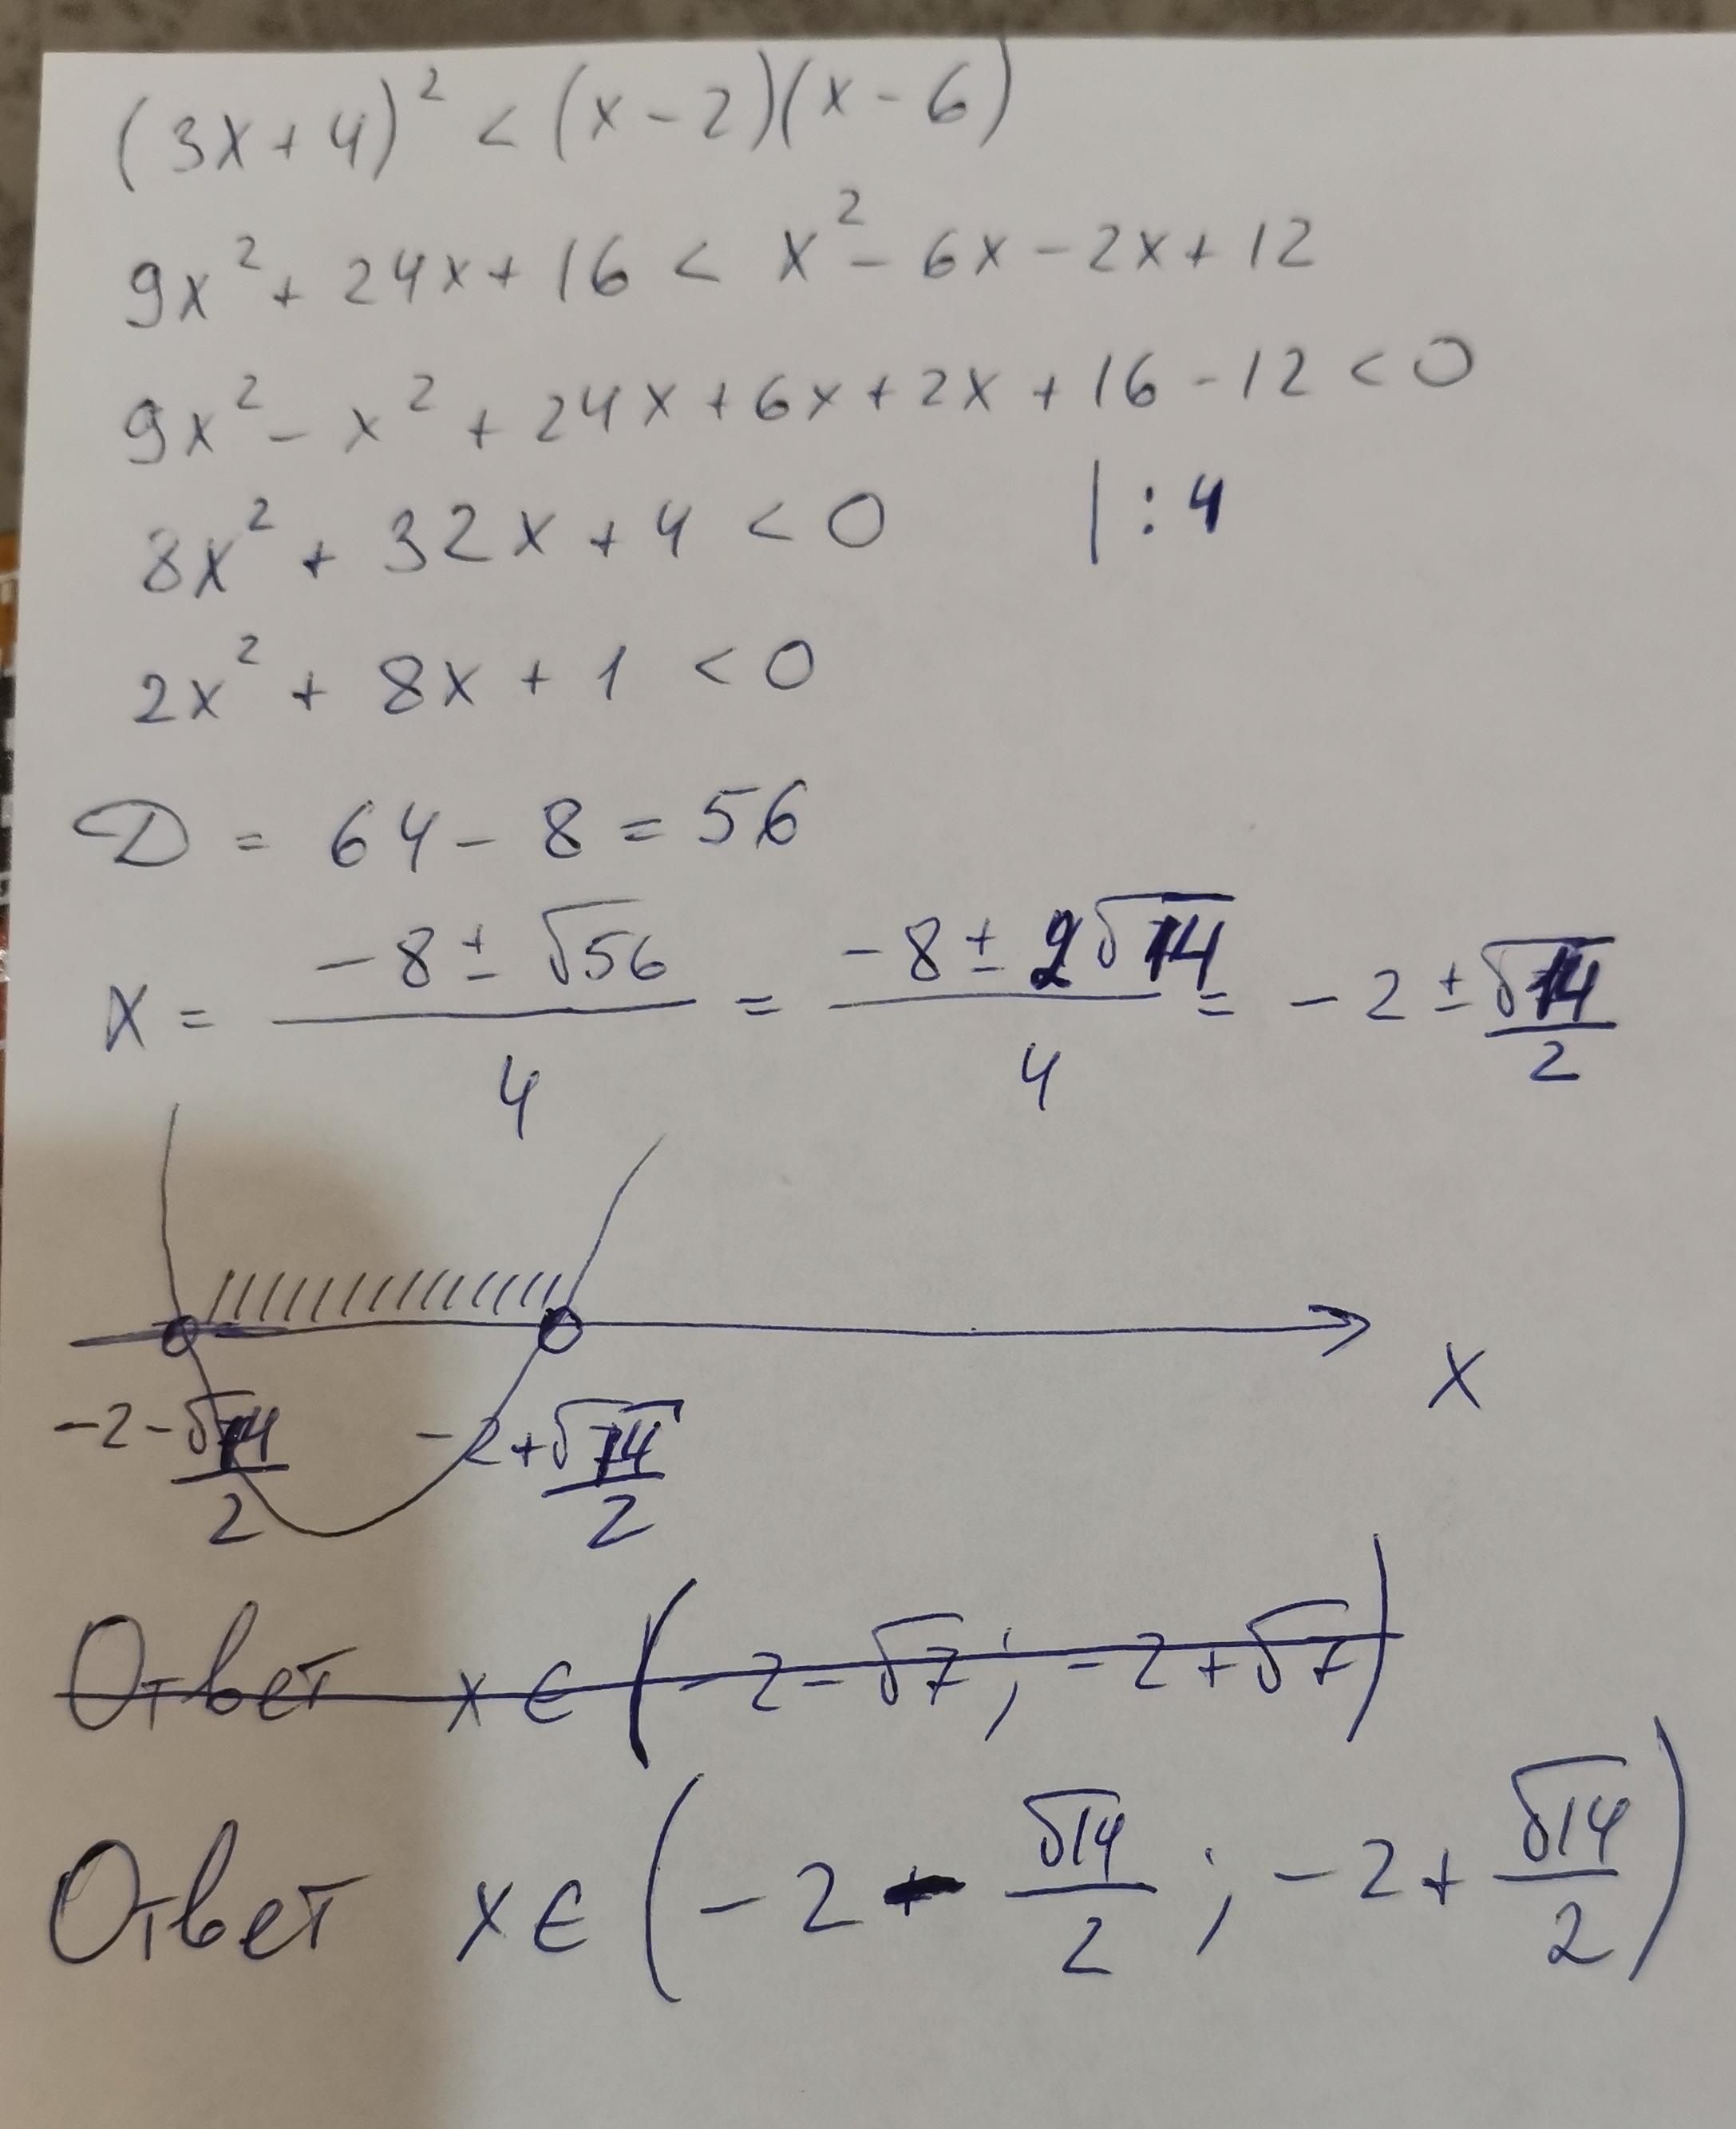 (3x+4)² < (x-2)(x-6)
9x² + 24x + 16 < x² - 6x - 2x + 12
9x² - x² + 24x + 6x + 2x + 16 - 12 < 0
8x² + 32x + 4 < 0 | : 4
2x² + 8x + 1 < 0
D = 64 - 8 = 56
x = (-8 ± √56)/4 = (-8 ± 2√14)/4 = -2 ± √14/2
x
-2-√14/2 -2+√14/2
Ответ x ∈ (-2-√7; -2+√7)
Ответ x ∈ (-2 - √14/2; -2 + √14/2)